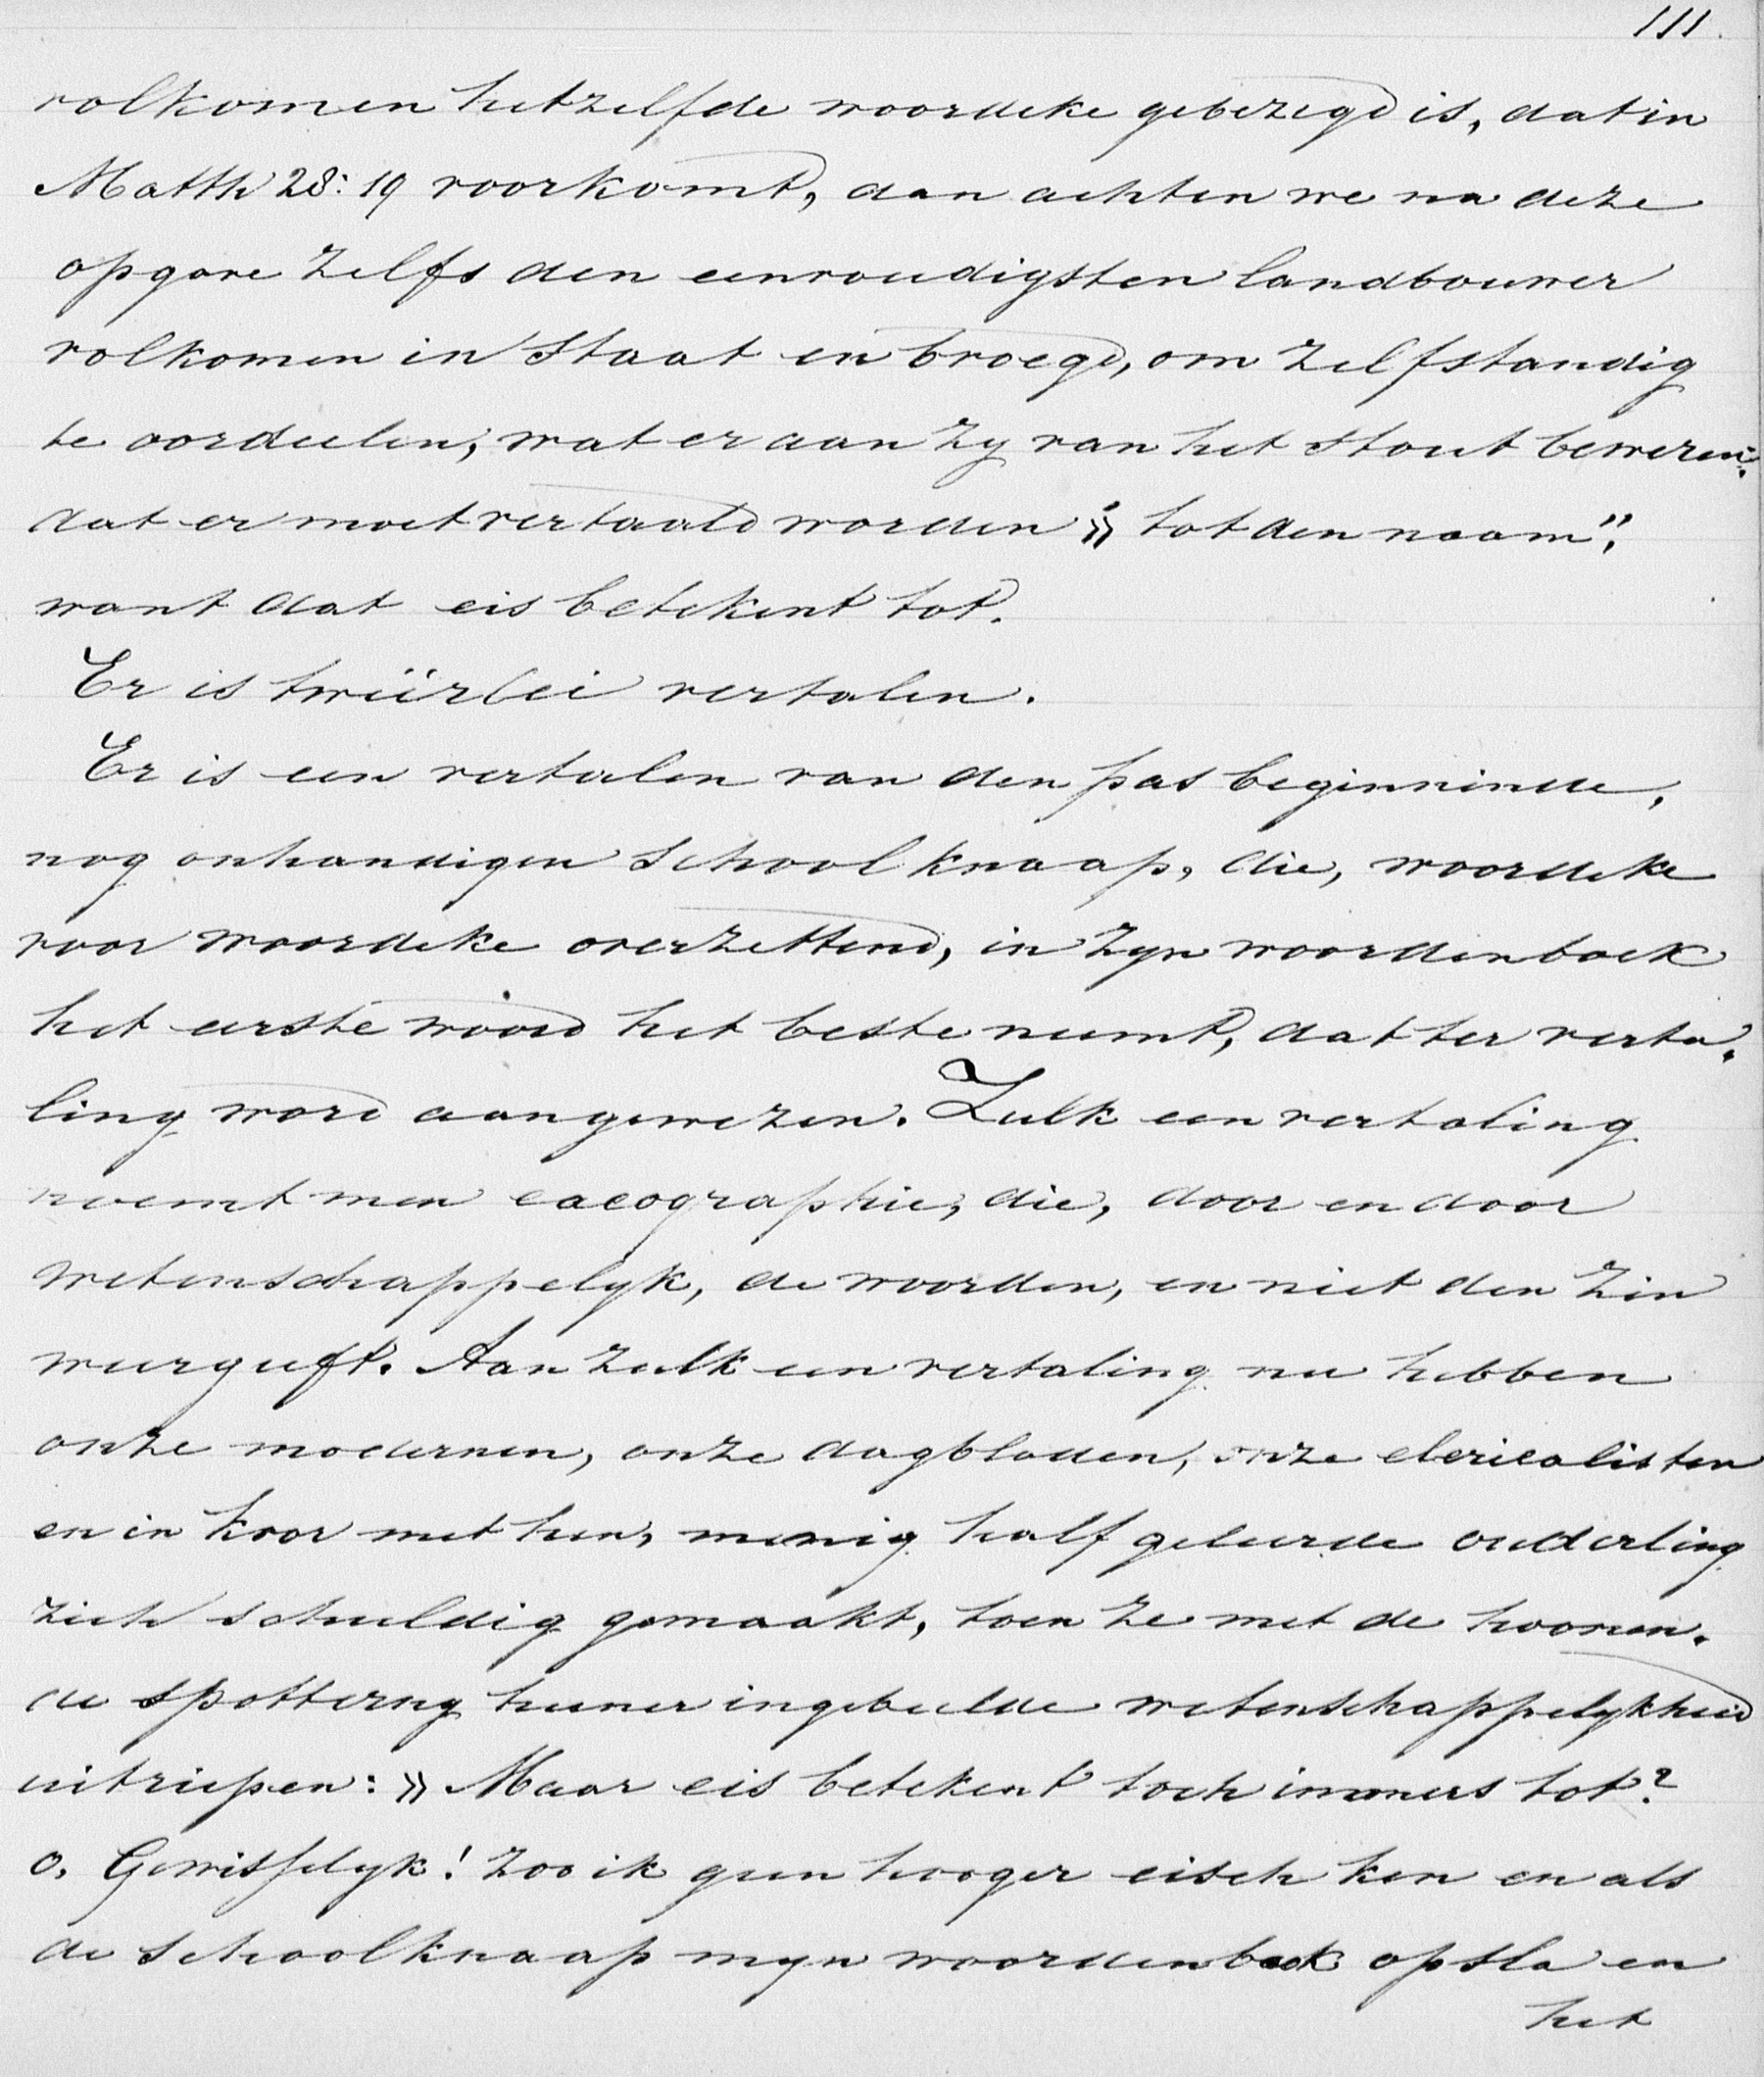 111.
volkomen hetzelfde woordeke gebezigd is, dat in
Matth 28: 19 voorkomt, dan achten we na deze
opgave zelfs den eenvoudigsten landbouwer
volkomen in staat en bevoegd, om zelfstandig
te oordeelen, wat er aan zy van het stout beweren:
dat er moet vertaald worden » tot den naam",
want dat eis beteekent tot.
Er is tweëerlei vertalen.
Er is een vertalen van den pas beginnende,
nog onhandigen schoolknaap, die, woordeke
voor woordeke overzettend, in zyn woordenboek
het eerste woord het beste neemt, dat ter verta-
ling word aangewezen. Zulk een vertaling
noemt men cacographie, die, door en door
wetenschappelyk, de woorden, en niet den zin
weergeeft. Aan zulk een vertaling nu hebben
onze modernen, onze dagbladen, onze clericalisten
en in koor met hen, menig half geleerde ouderling
zich schuldig gemaakt, toen ze met de hoonen-
de spotterny hunner ingebeelde wetenschappelykheid
uitriepen: » Maar eis beteekent toch immers tot?
o. Gewisselyk! zoo ik geen hooger eisch ken en als
de schoolknaap myn woordenboek opsla en
het